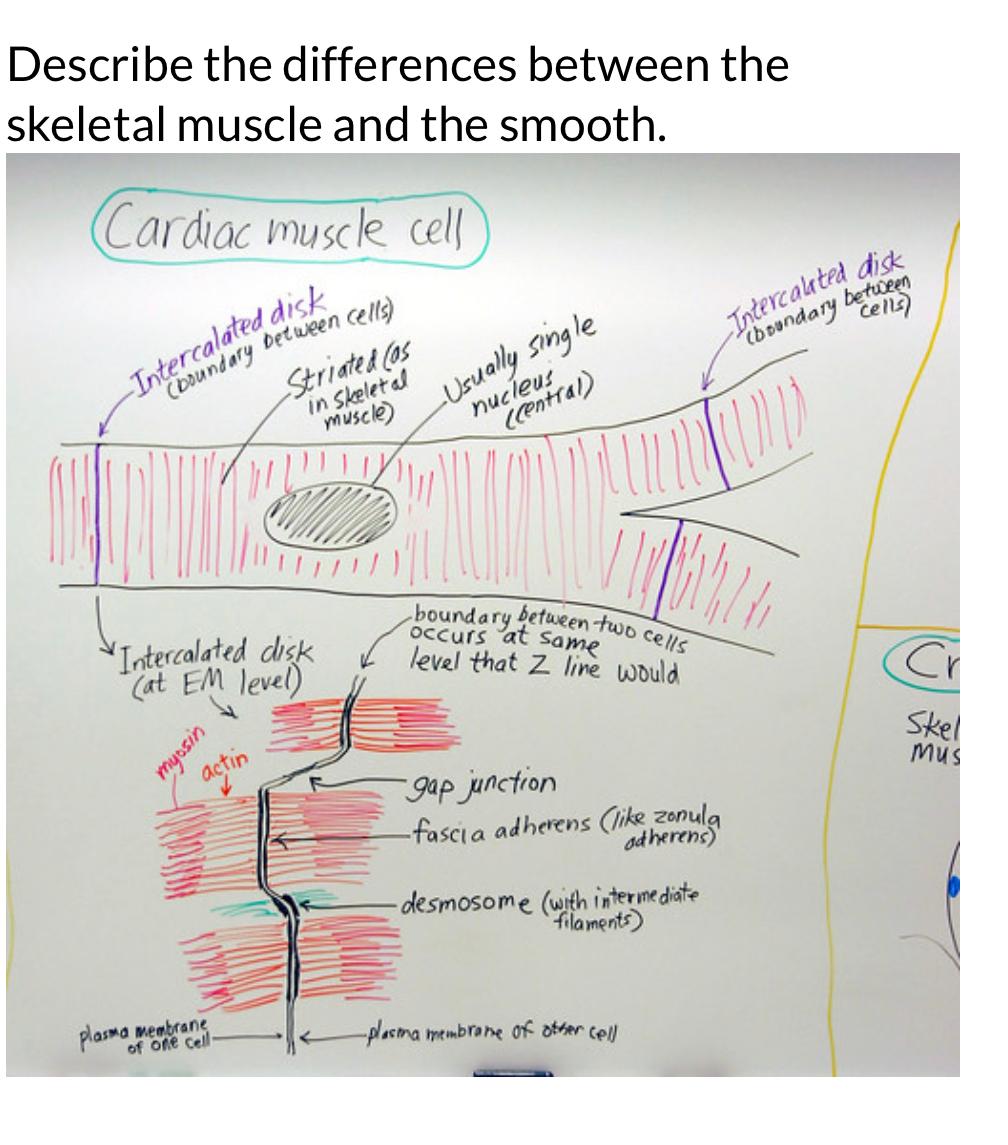 Describe the differences between the
skeletal muscle and the smooth.
Cardiac muscle cell
Intercalated disk
(boundary between cells)
Striated (as
in skeletal
muscle)
Usually single
nucleus
(central)
Intercalated disk
(boundary between
cells)
Intercalated disk
(at EM level)
boundary between two cells
occurs at same
level that Z line would
myosin
actin
gap junction
fascia adherens (like zonula
adherens)
desmosome (with intermediate
filaments)
plasma membrane
of one cell
plasma membrane of other cell
Cr
Skel
Mus